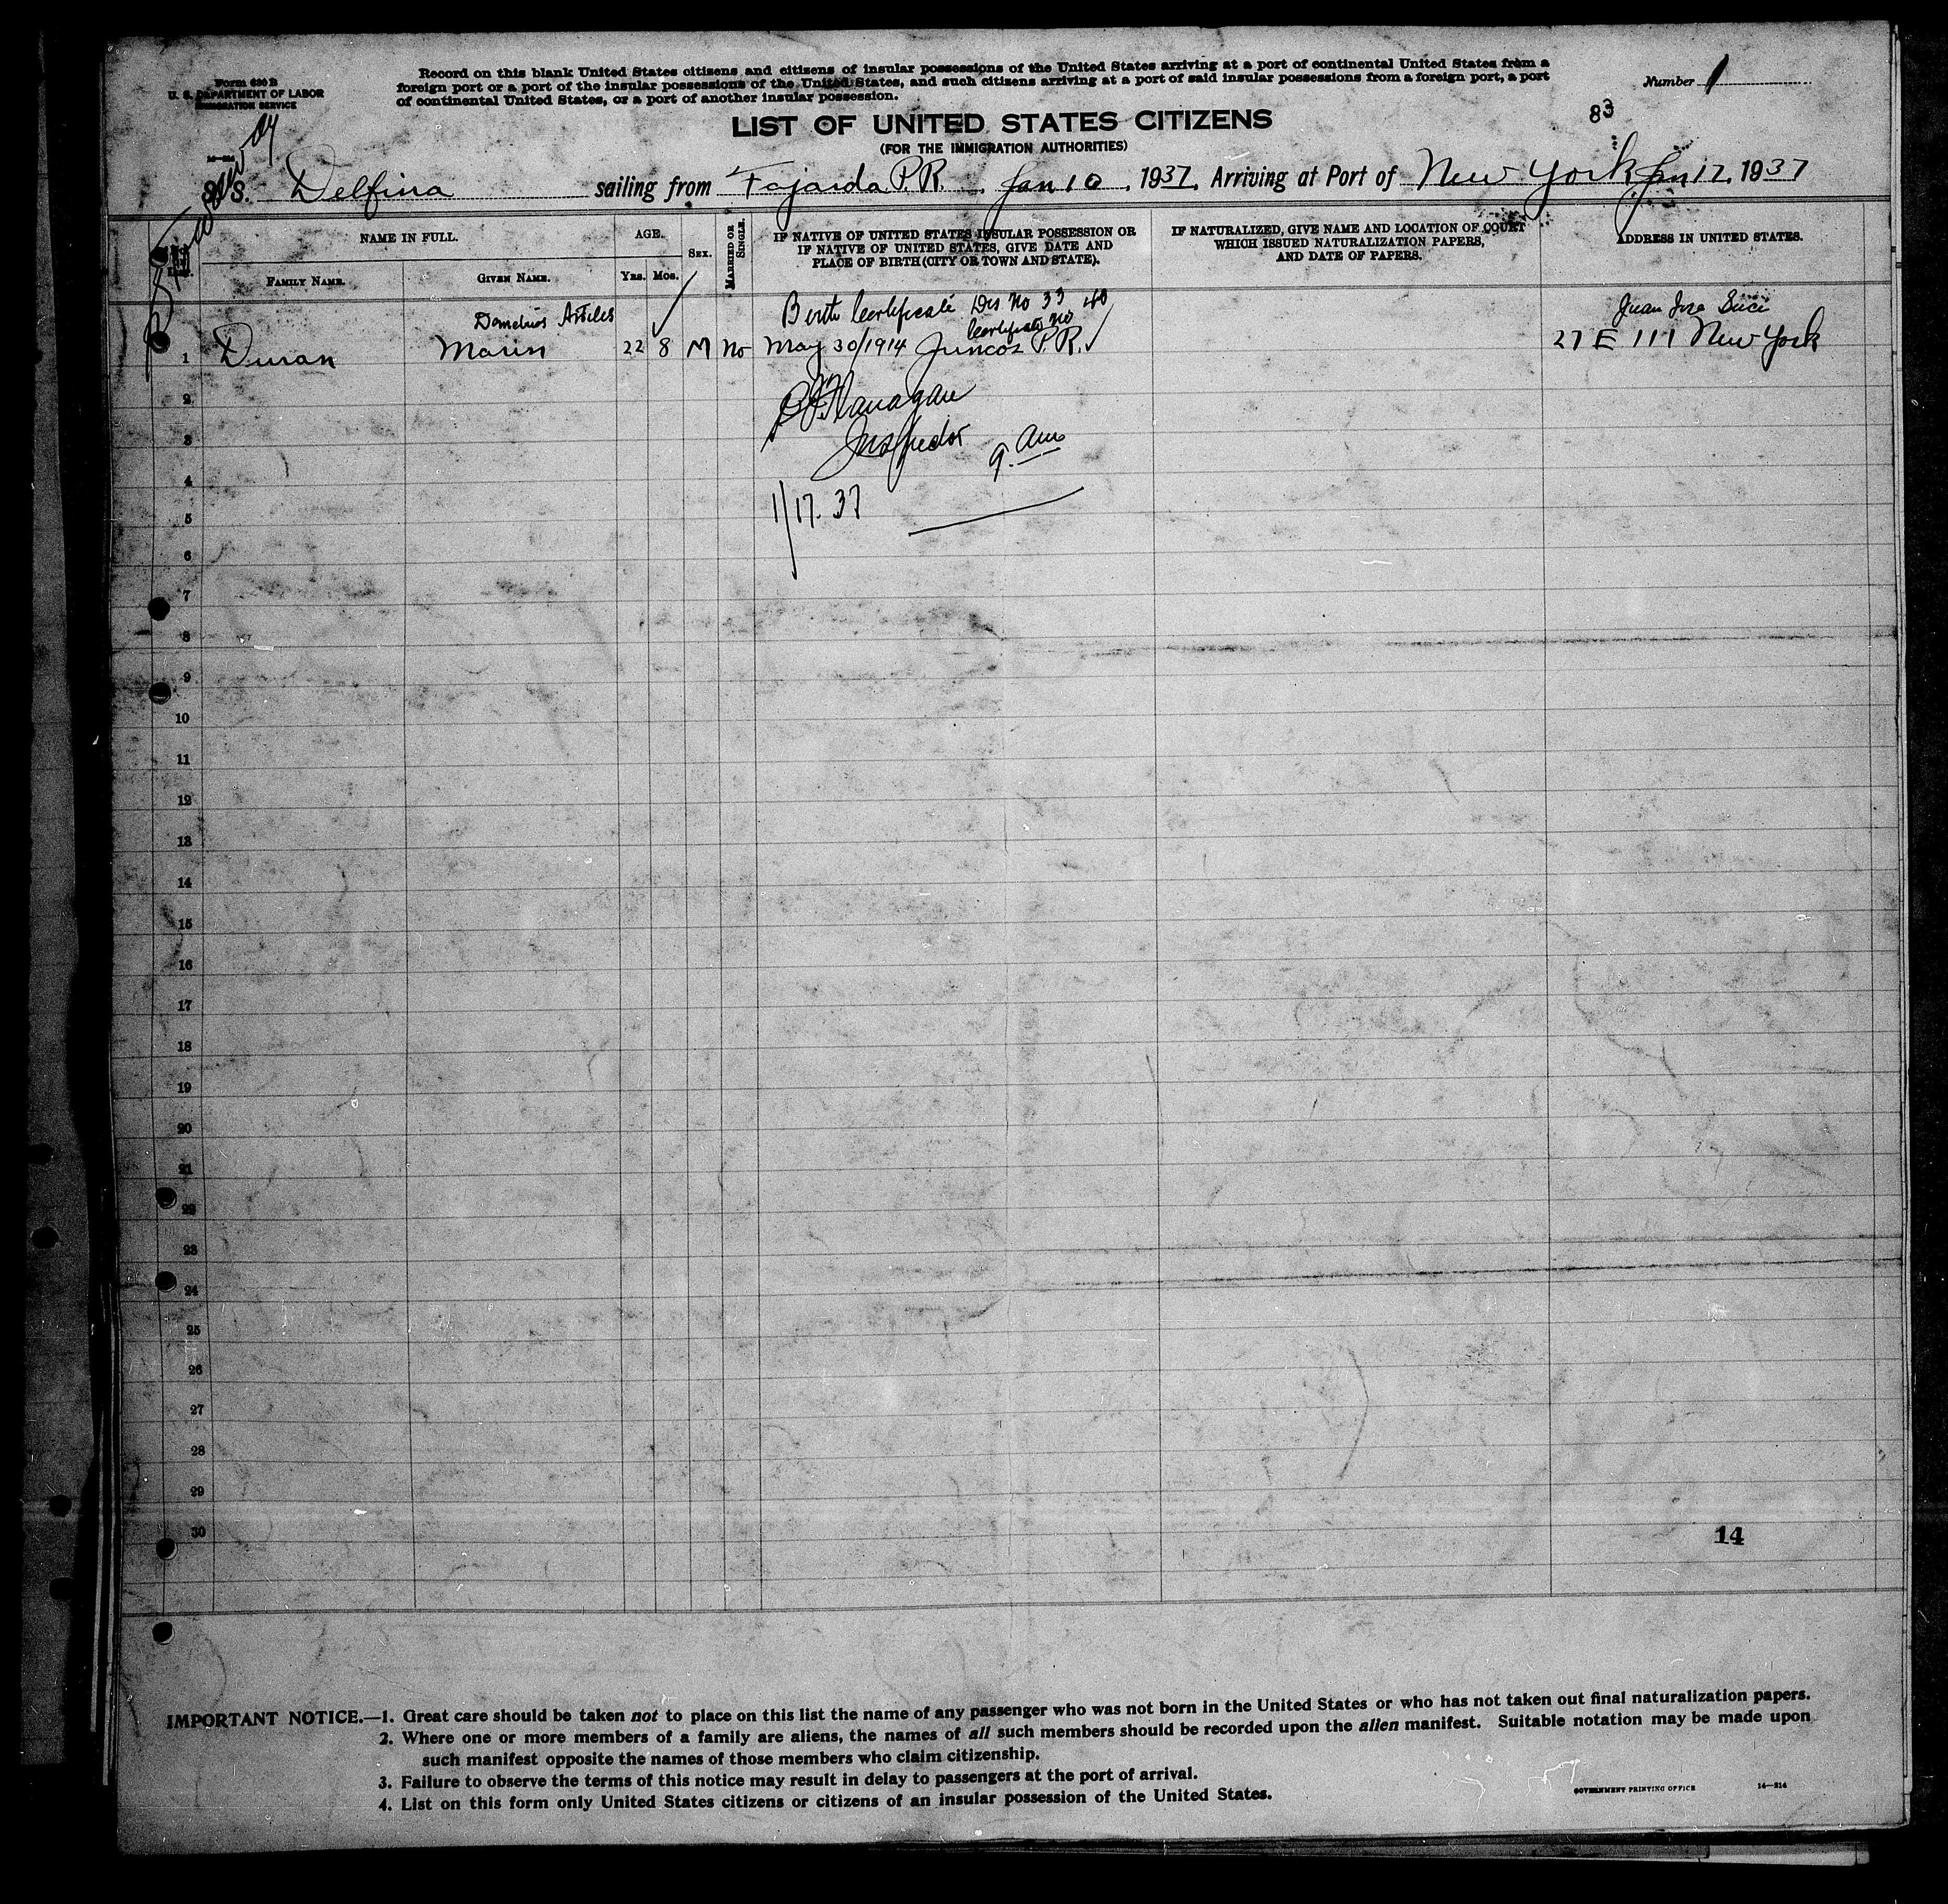 Form 630 B
U. S. DEPARTMENT OF LABOR
IMMIGRATION SERVICE
Record on this blank United States citizens and citizens of insular possessions of the United States arriving at a port of continental United States from a
foreign port or a port of the insular possessions of the United States, and such citizens arriving at a port of said insular possessions from a foreign port, a port
of continental United States, or a port of another insular possession.
Number 1
83
LIST OF UNITED STATES CITIZENS
(FOR THE IMMIGRATION AUTHORITIES)
S. S. Delfina sailing from Fajarda P.R., Jan 10, 1937, Arriving at Port of New York, Jan 17, 1937
NAME IN FULL.
AGE.
SEX.
MARRIED OR SINGLE.
IF NATIVE OF UNITED STATES INSULAR POSSESSION OR
IF NATIVE OF UNITED STATES, GIVE DATE AND
PLACE OF BIRTH (CITY OR TOWN AND STATE).
IF NATURALIZED, GIVE NAME AND LOCATION OF COURT
WHICH ISSUED NATURALIZATION PAPERS,
AND DATE OF PAPERS.
ADDRESS IN UNITED STATES.
FAMILY NAME. GIVEN NAME. YRS. MOS.
Birth Certificate Des No 33
Certificate No
Juan Jose
1 Duran Marin 22 8 M No May 30/1914 Juncos P.R. 27 E 111 New York
2
Flanagan
3
Inspector 9. am
4
5
1/17.37
6
7
8
9
10
11
12
13
14
15
16
17
18
19
20
21
22
23
24
25
26
27
28
29
30
14
IMPORTANT NOTICE.—1. Great care should be taken not to place on this list the name of any passenger who was not born in the United States or who has not taken out final naturalization papers.
2. Where one or more members of a family are aliens, the names of all such members should be recorded upon the alien manifest. Suitable notation may be made upon
such manifest opposite the names of those members who claim citizenship.
3. Failure to observe the terms of this notice may result in delay to passengers at the port of arrival.
4. List on this form only United States citizens or citizens of an insular possession of the United States.
GOVERNMENT PRINTING OFFICE 14—214